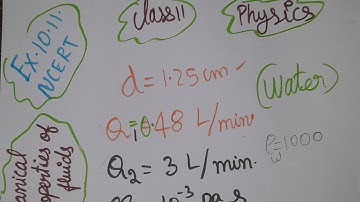 Class 11 Physics
Ex. 10.11.
NCERT
d = 1.25 cm
(Water)
Q₁ = 0.48 L/min.
ρw = 1000
Q₂ = 3 L/min.
of
fluids
10⁻³ pa.s